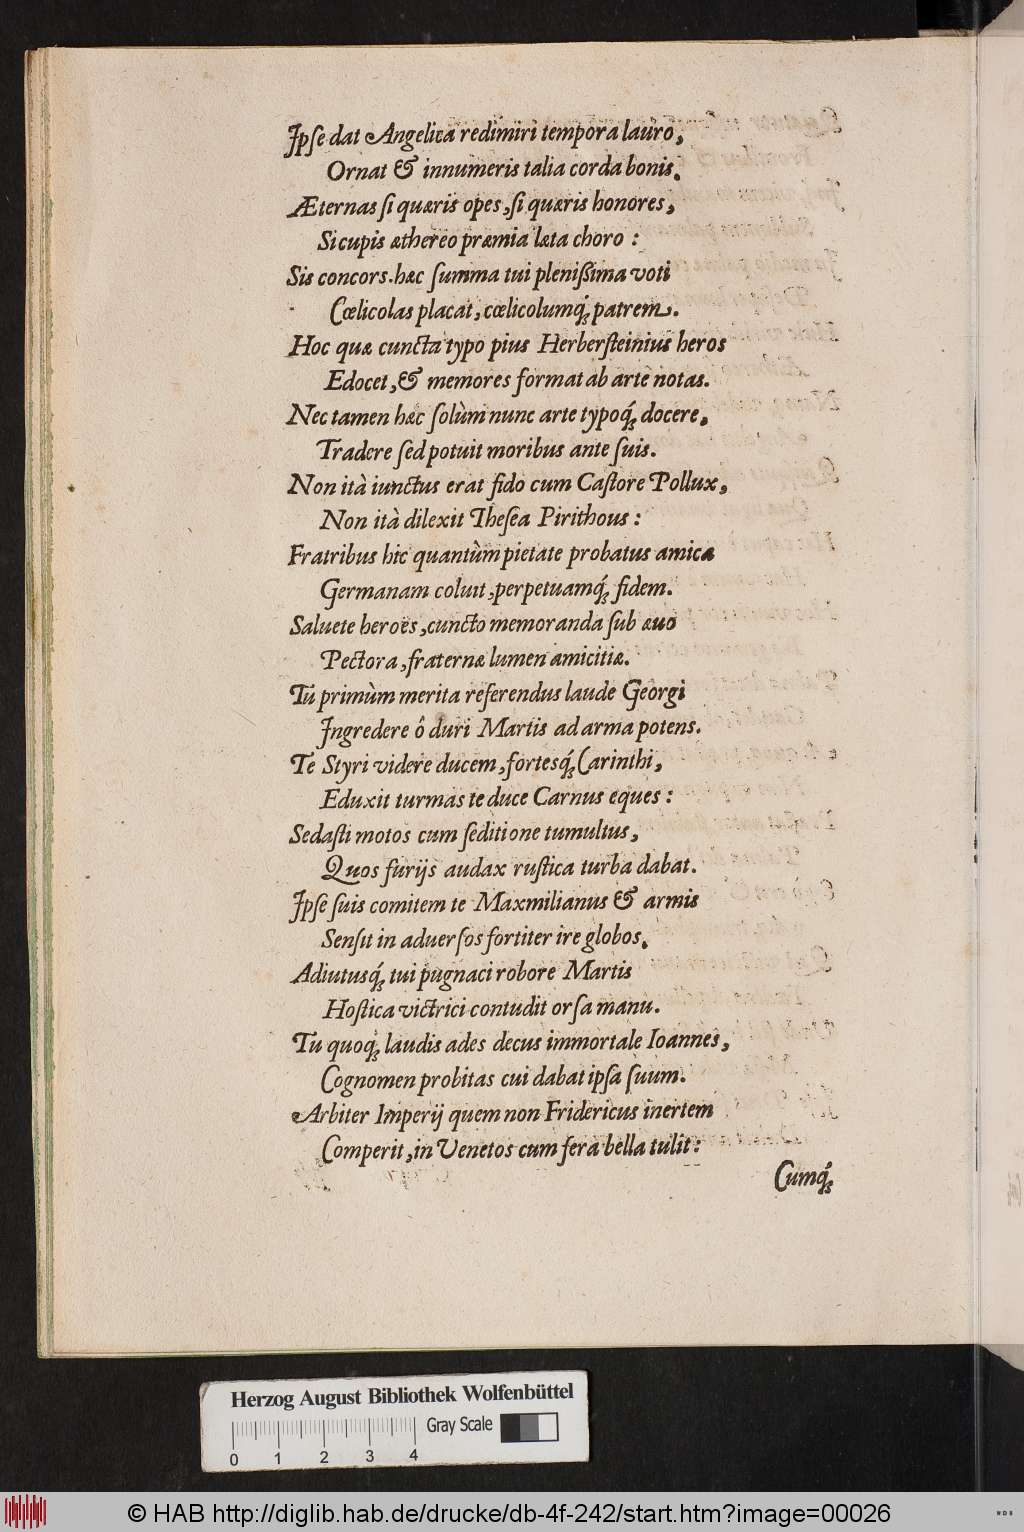 Ipſe dat Angelica redimiri tempora lauro,
Ornat & innumeris talia corda bonis.
Æternas ſi quæris opes, ſi quæris honores,
Si cupis æthereo præmia læta choro :
Sis concors. hæc ſumma tui pleniſſima voti
Cœlicolas placat, cœlicolumq́; patrem.
Hoc quæ cuncta typo pius Herberſteinius heros
Edocet, & memores format ab arte notas.
Nec tamen hæc ſolùm nunc arte typoq́; docere,
Tradere ſed potuit moribus ante ſuis.
Non ità iunctus erat fido cum Caſtore Pollux,
Non ità dilexit Theſea Pirithous :
Fratribus hic quantùm pietate probatus amicæ
Germanam coluit, perpetuamq́; fidem.
Saluete heroës, cuncto memoranda ſub æuo
Pectora, fraternæ lumen amicitiæ.
Tu primùm merita referendus laude Georgi
Ingredere ô duri Martis ad arma potens.
Te Styri videre ducem, fortesq́; Carinthi,
Eduxit turmas te duce Carnus eques :
Sedaſti motos cum ſeditione tumultus,
Quos furijs audax ruſtica turba dabat.
Ipſe ſuis comitem te Maxmilianus & armis
Senſit in aduerſos fortiter ire globos.
Adiutusq́; tui pugnaci robore Martis
Hoſtica victrici contudit orſa manu.
Tu quoq́; laudis ades decus immortale Ioannes,
Cognomen probitas cui dabat ipſa ſuum.
Arbiter Imperij quem non Fridericus inertem
Comperit, in Venetos cum fera bella tulit :
Cumq́;
Herzog August Bibliothek Wolfenbüttel
Gray Scale
0 1 2 3 4
© HAB http://diglib.hab.de/drucke/db-4f-242/start.htm?image=00026